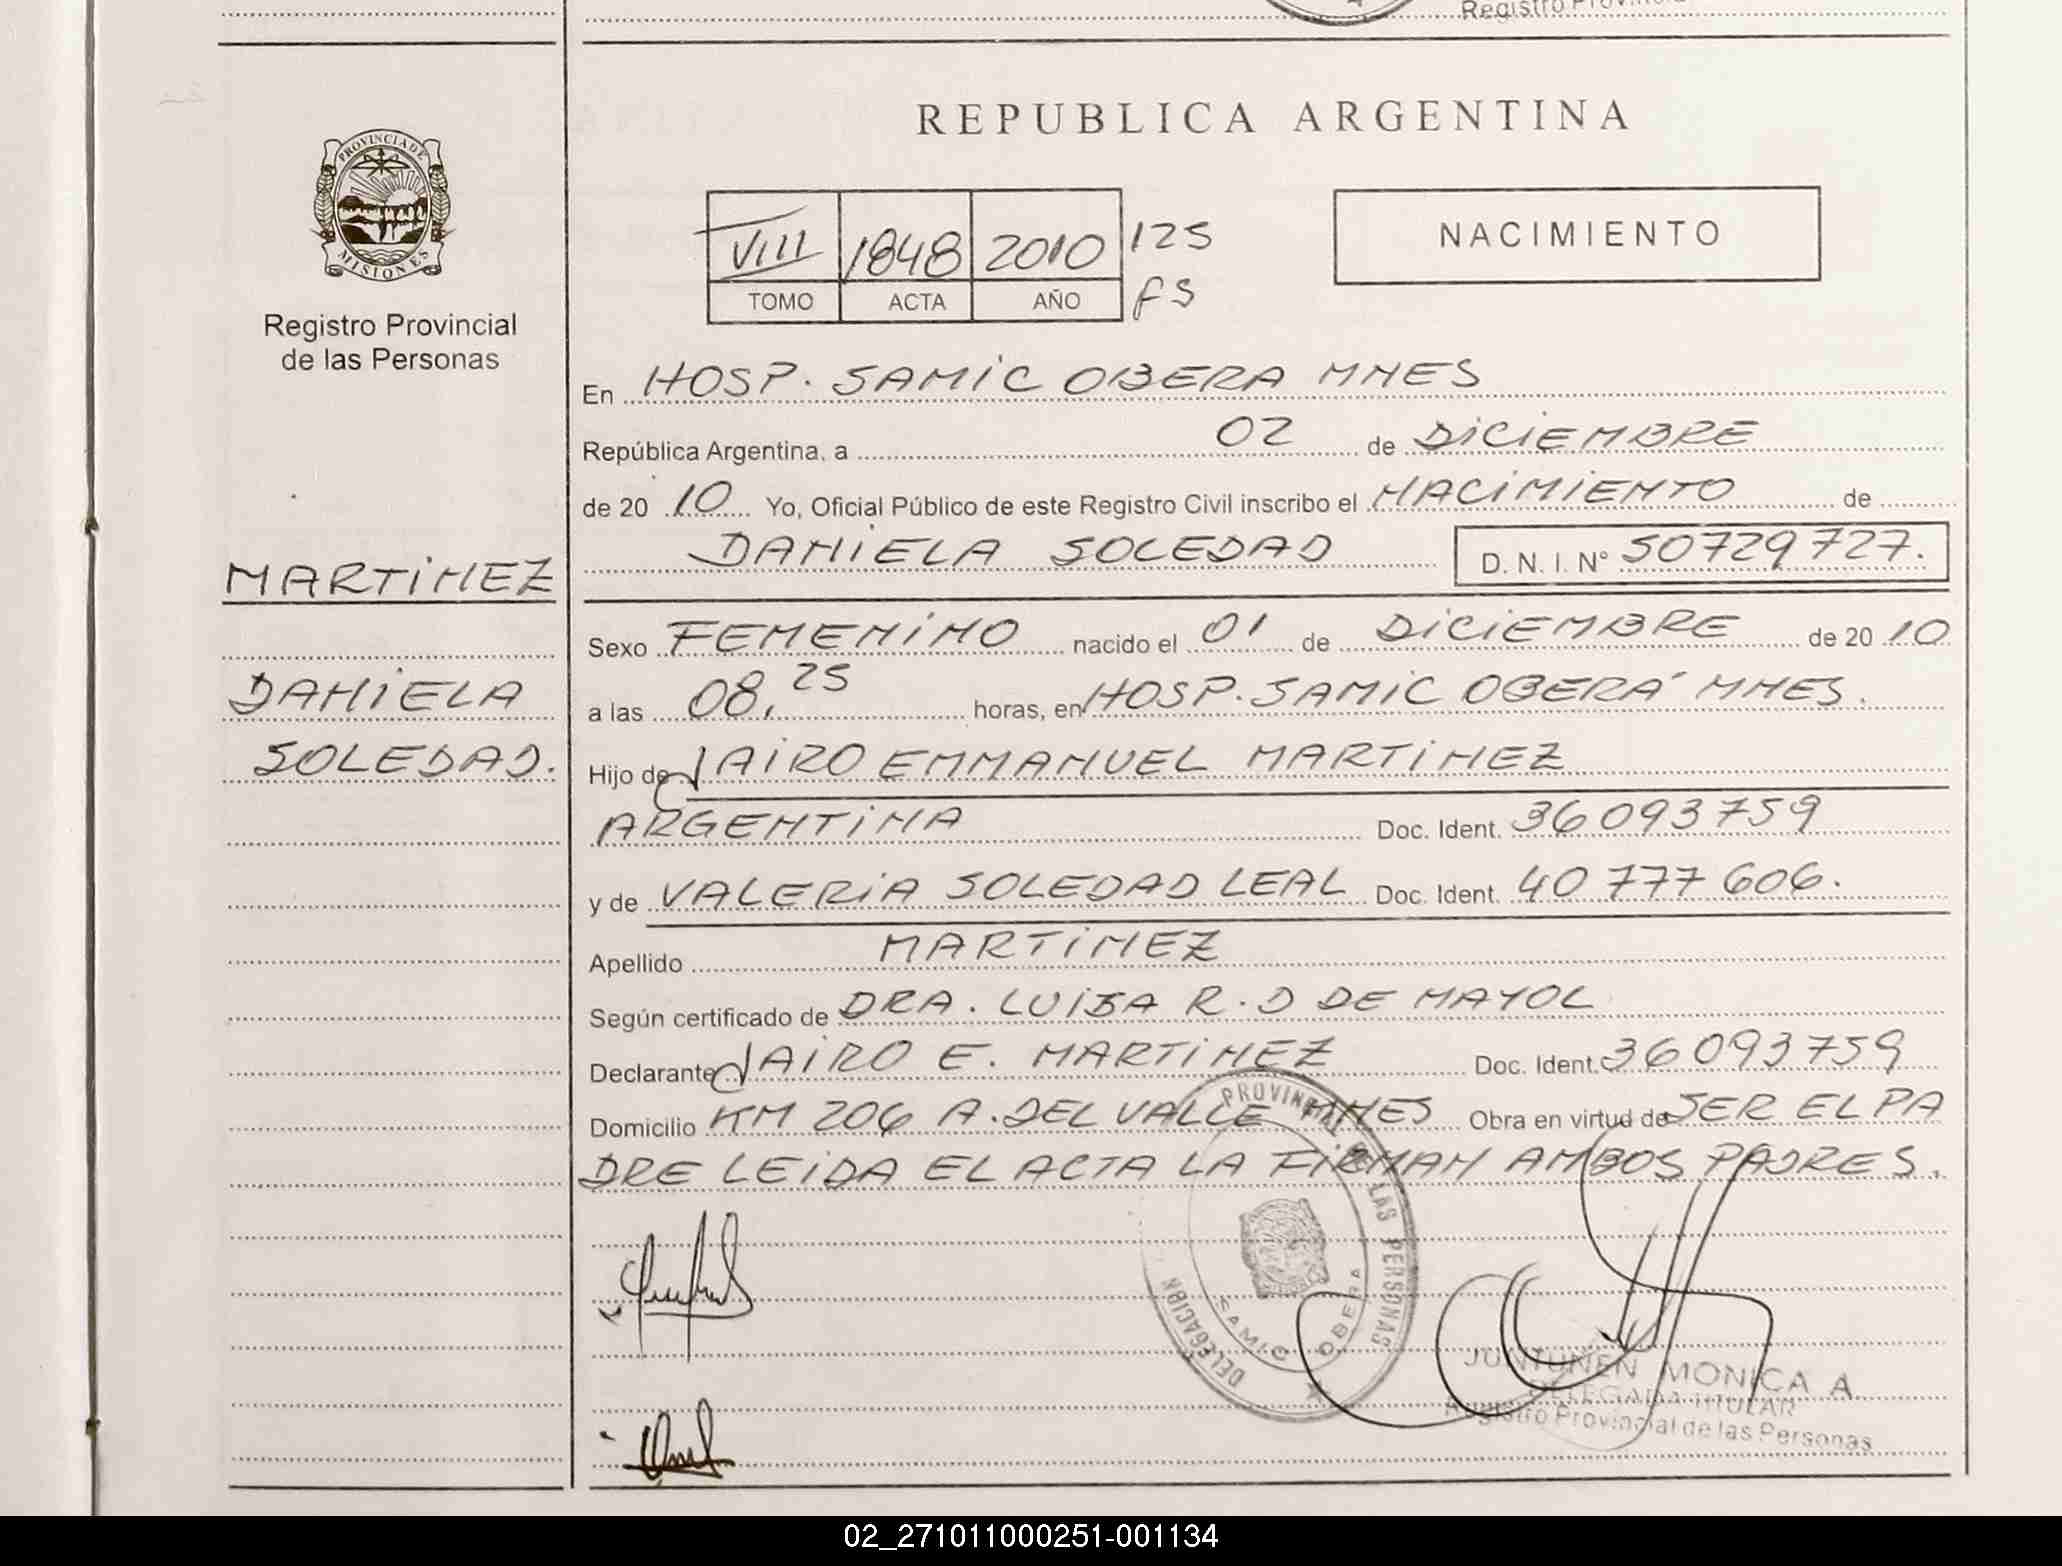 Registro Provincial
REPUBLICA ARGENTINA
PROVINCIA DE
MISIONES
Registro Provincial
de las Personas
VIII 1848 2010 125
TOMO ACTA AÑO FS
NACIMIENTO
En HOSP. SAMIC OBERA MNES
República Argentina, a 02 de DICIEMBRE
de 20 10 Yo, Oficial Público de este Registro Civil inscribo el NACIMIENTO de
DANIELA SOLEDAD D. N. I. Nº 50729727.
MARTINEZ
DANIELA
SOLEDAD.
Sexo FEMENINO nacido el 01 de DICIEMBRE de 20 10
a las 08,25 horas, en HOSP. SAMIC OBERÁ MNES.
Hijo de JAIRO EMMANUEL MARTINEZ
ARGENTINA Doc. Ident. 36093759
y de VALERIA SOLEDAD LEAL Doc. Ident. 40777606.
Apellido MARTINEZ
Según certificado de DRA. LUISA R. D DE MAYOL
Declarante JAIRO E. MARTINEZ Doc. Ident. 36093759
Domicilio KM 206 A. DEL VALLE MNES Obra en virtud de SER EL PA
DRE LEIDA EL ACTA LA FIRMAN AMBOS PADRES.
PROVINCIAL DE LAS PERSONAS
DELEGACION
SAMIC OBERA
JUNTUNEN MONICA A
DELEGADA TITULAR
Registro Provincial de las Personas
02_271011000251-001134